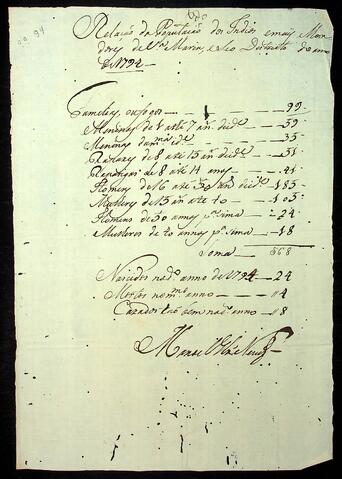 Relação da População dos Indios e mais Mora
dores de V.ª Maria, e Seo Destrito do anno
de 1794
Familias, ou fogos — 99
Meninos de 1 ate 7 an.s de id.e — 59
Meninas da m.ma id.e — 35
Rapazes de 8 ate 15 an.s de id.e — 51
Raparigas de 8 ate 14 annos — 41
Homens de 16 ate 50 an.s de id.e — 185
Mulheres de 15 an.s ate 40 — 105
Homens de 50 annos p.ª sima — 24
Mulheres de 40 annos p.ª sima — 18
Soma — 568
Nascidos no d.º anno de 1794 — 24
Mortos no m.mo anno — 14
Cazados tão bem no d.º anno — 18